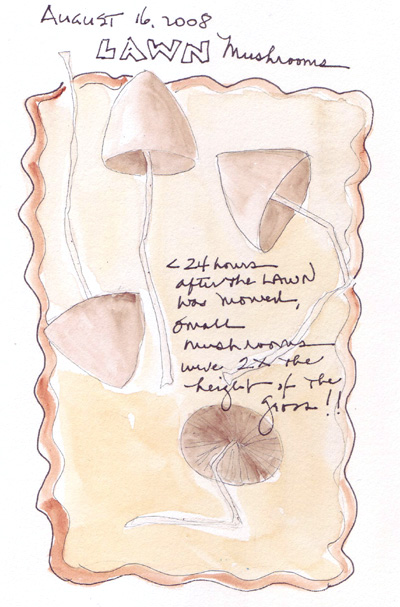 AUGUST 16, 2008
LAWN Mushrooms
< 24 hours
after the LAWN
was mowed,
small
mushrooms
were 2X the
height of the
grass!!